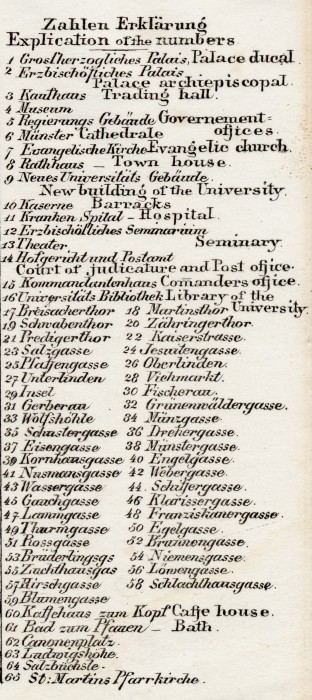 Zahlen Erklärung
Explication of the numbers
1 Grosherzogliches Palais, Palace ducal.
2 Erzbischöfliches Palais
Palace archiepiscopal.
3 Kaufhaus Trading hall.
4 Museum
5 Regierungs Gebäude Governement=
offices.
6 Münster Cathedrale
7 Evangelische Kirche Evangelic church.
8 Rathhaus — Town house.
9 Neues Universitäts Gebäude.
New building of the University.
10 Kaserne Barracks
11 Kranken Spital - Hospital.
12 Erzbischöfliches Seminarium
Seminary.
13 Theater.
14 Hofgericht und Postamt
Court of judicature and Post office.
15 Kommandantenhaus Comanders office.
16 Universitäts Bibliothek Library of the
University.
17 Breisacherthor 18 Martinsthor
19 Schwabenthor 20 Zähringerthor
21 Predigerthor 22 Kaiserstrasse.
23 Salzgasse 24 Jesuitengasse.
25 Pfaffengasse 26 Oberlinden.
27 Unterlinden 28 Viehmarkt.
29 Insel 30 Fischerau.
31 Gerberau 32 Grünenwäldergasse.
33 Wolfshöhle 34 Münzgasse
35 Schustergasse 36 Drehergasse.
37 Eisengasse 38 Münstergasse
39 Kornhausgasse 40 Engelgasse.
41 Nusmansgasse 42 Webergasse.
43 Wassergasse 44 Schiffergasse.
45 Gauchgasse 46 Klarissergasse
47 Lammgasse 48 Franziskanergasse
49 Thurmgasse 50 Egelgasse.
51 Rossgasse 52 Brunnengasse
53 Brüderlingsgs 54 Niemensgasse.
55 Zuchthausgas 56 Löwengasse
57 Hirschgasse 58 Schlachthausgasse.
59 Blumengasse
60 Kaffehaus zum Kopf Caffe house.
61 Bad zum Pfauen — Bath.
62 Canonenplatz.
63 Ludwigshöhe.
64 Salzbüchsle.
65 St: Martins Pfarrkirche.